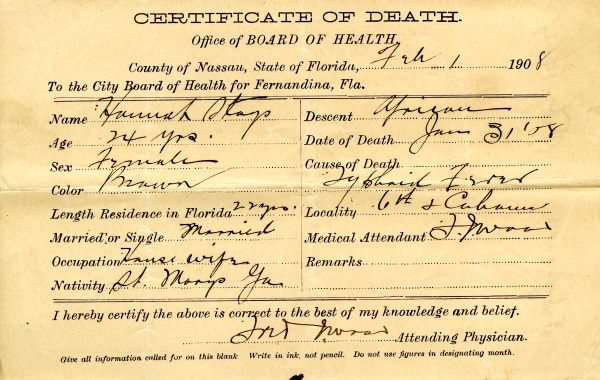 CERTIFICATE OF DEATH.
Office of BOARD OF HEALTH,
County of Nassau, State of Florida, Feb 1 1908
To the City Board of Health for Fernandina, Fla.
Name Hannah
Age 24 yrs.
Sex Female
Color Brown
Length Residence in Florida 22 yrs.
Married or Single Married
Occupation House wife
Nativity St. Marys Ga
Descent African
Date of Death Jan 31 '08
Cause of Death
Typhoid Fever
Locality 6th &
Medical Attendant
Remarks
I hereby certify the above is correct to the best of my knowledge and belief.
Attending Physician.
Give all information called for on this blank Write in ink, not pencil. Do not use figures in designating month.